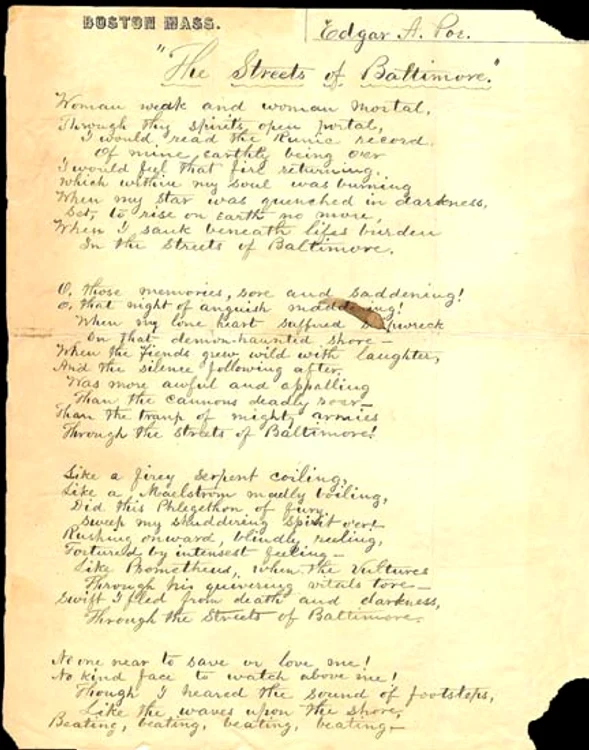 BOSTON MASS.
Edgar A. Poe.
"The Streets of Baltimore."
Woman weak and woman mortal,
Through thy spirits open portal,
I would read the Runic record
Of mine earthly being o'er
I would feel that fire returning,
Which within my soul was burning
When my star was quenched in darkness,
Set, to rise on earth no more,
When I sank beneath lifes burden
In the Streets of Baltimore.
O, those memories, sore and saddening!
O, that night of anguish maddening!
When my lone heart suffered shipwreck
On that demon-haunted shore—
When the fiends grew wild with laughter,
And the silence following after,
Was more awful and appalling
Than the cannons deadly roar—
Than the tramp of mighty armies
Through the streets of Baltimore!
Like a firey serpent coiling,
Like a Maelstrom madly boiling,
Did this Phlegethon of fury
Sweep my shuddering spirit o'er!
Rushing onward, blindly reeling,
Tortured by intensest feeling—
Like Prometheus, when the vultures
Through his quivering vitals tore—
Swift I fled from death and darkness,
Through the Streets of Baltimore.
No one near to save or love me!
No kind face to watch above me!
Though I heared the sound of footsteps,
Like the waves upon the shore,
Beating, beating, beating, beating—